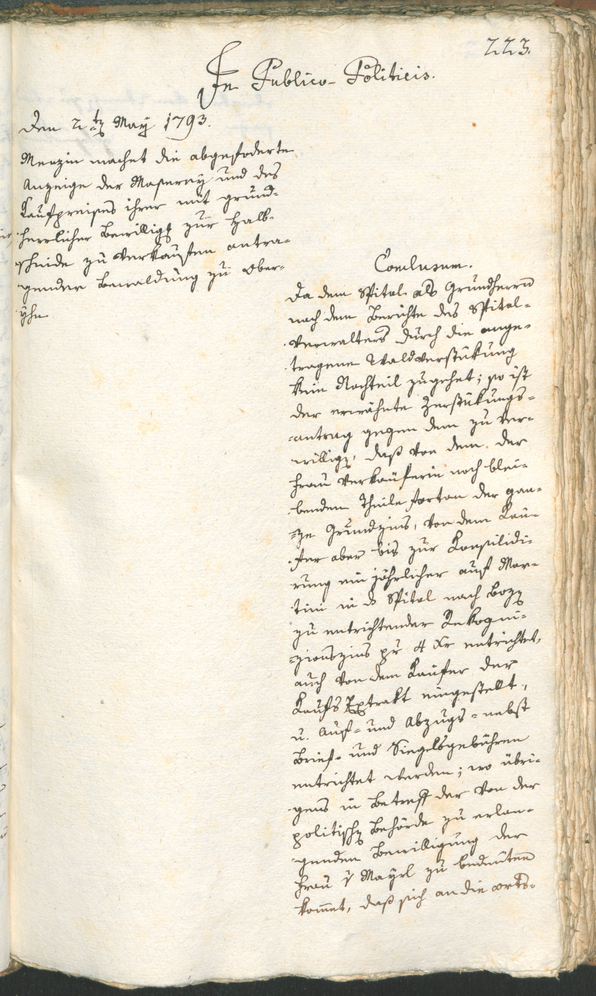 223.
In Publico-Politicis.
Den 2ten May 1793.
Menzin machet die abgefoderte
Anzeige der Masseray und des
Kaufpreises ihrer mit grund-
herrlicher Bewilligg zur Halb-
scheide zu verkaufen antra-
genden Bewaldung zu Ober-

Conlusum.
Da dem Spital als Grundherrn
nach dem Berichte des Spital-
verwalters durch die ange-
tragene Waldverstükung
kein Nachteil zugehet; so ist
der erwähnte Zerstükungs-
antrag gegen dem zu ver-
willigen, daß von dem der
Frau Verkäuferin noch blei-
bendem Theile fortan der gan-
ze Grundzins, von dem Käu-
fer aber bis zur Konsilidi-
rung ein jährlicher auf Mar-
tini in das Spital nach Bozen
zu entrichtender Rekogni-
zionszins pr 4 Xr entrichtet,
auch von dem Käufer der
Kaufs Extrakt eingestellt,
u. Auf- und Abzugs- nebst
Brief- und Siegelsgebühren
entrichtet werden; wo übri-
gens in Betreff der von der
politischen Behörde zu erlan-
genden Bewilligung der
Frau v Mayrl zu bedeuten
kommet, daß sich an die orts-